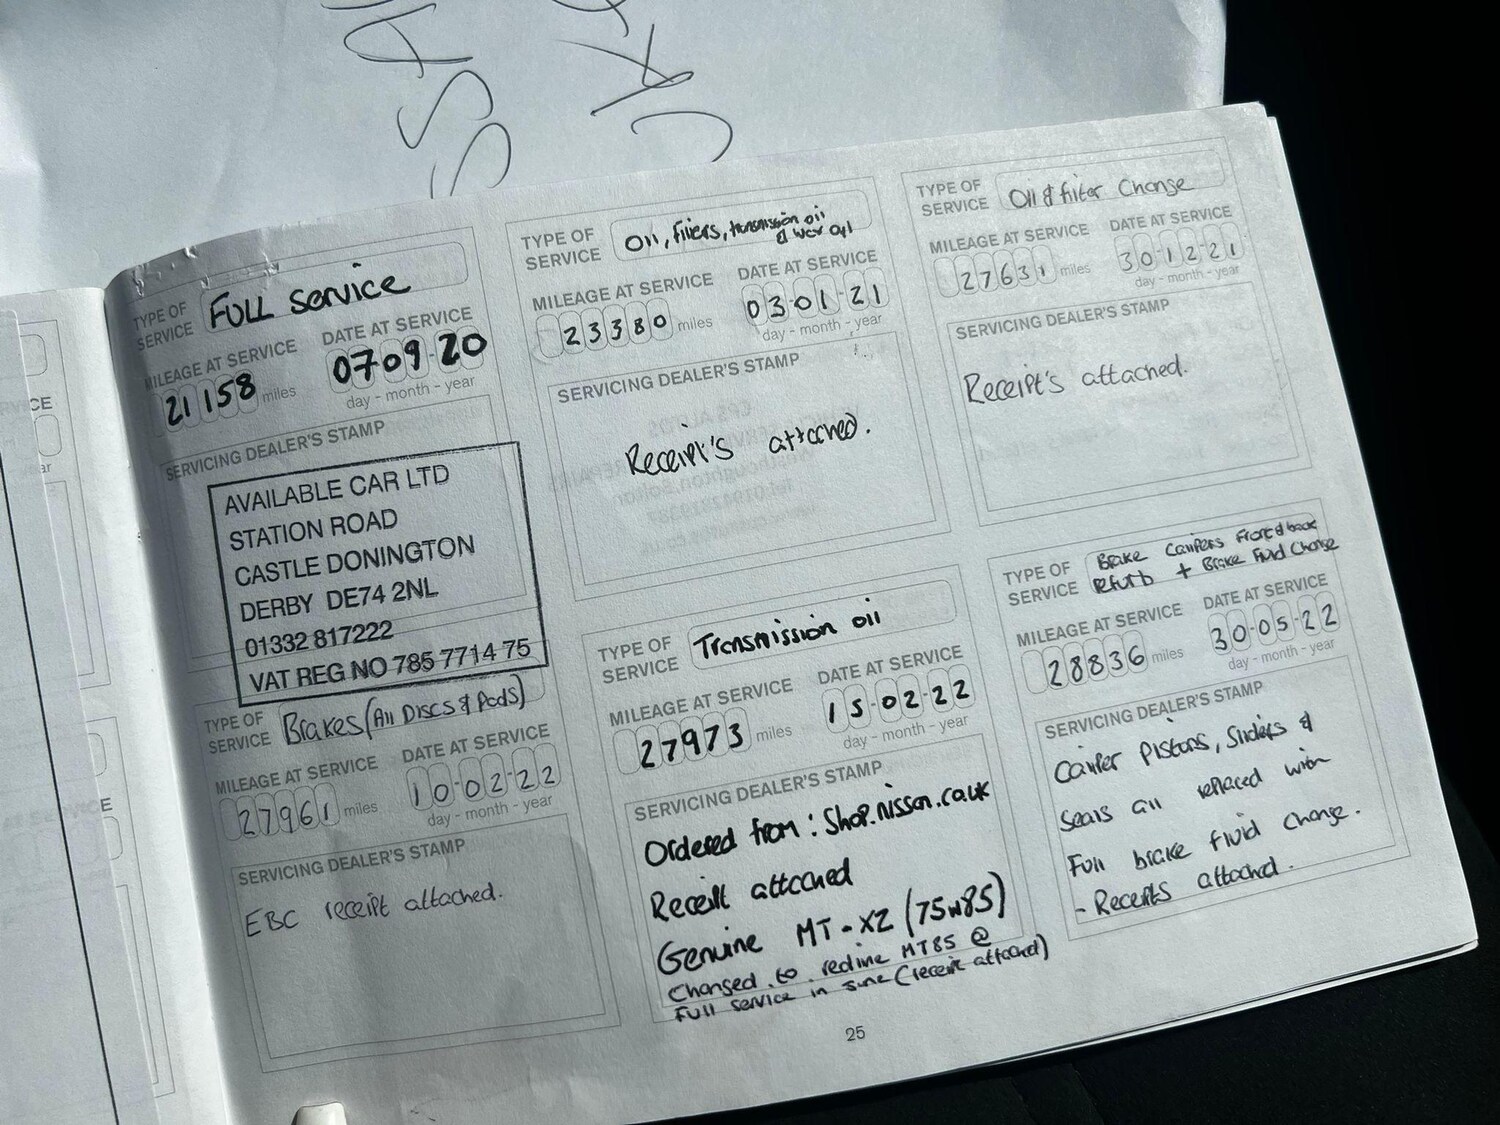 TYPE OF SERVICE FULL Service
MILEAGE AT SERVICE
DATE AT SERVICE
21158 miles
07 09-20
day - month - year
SERVICING DEALER'S STAMP
AVAILABLE CAR LTD
STATION ROAD
CASTLE DONINGTON
DERBY DE74 2NL
01332 817222
VAT REG NO 785 7714 75
TYPE OF SERVICE Oil, Filters, transmission oil
&
MILEAGE AT SERVICE
DATE AT SERVICE
23380 miles
03-01-21
day - month - year
SERVICING DEALER'S STAMP
Receipt's attached.
TYPE OF SERVICE Oil & filter Change
MILEAGE AT SERVICE
DATE AT SERVICE
27631 miles
30-12-21
day - month - year
SERVICING DEALER'S STAMP
Receipt's attached.
TYPE OF SERVICE Brakes (All DISCS & Pads)
MILEAGE AT SERVICE
DATE AT SERVICE
27961 miles
10-02-22
day - month - year
SERVICING DEALER'S STAMP
EBC receipt attached.
TYPE OF SERVICE Transmission oil
MILEAGE AT SERVICE
DATE AT SERVICE
27973 miles
15-02-22
day - month - year
SERVICING DEALER'S STAMP
Ordered from: Shop.nissan.co.uk
Receipt attached
Genuine MT-XZ (75w85)
Changed to redline MT85 @
Full service in June (receipt attached)
TYPE OF SERVICE Brake Calipers Front & back
Refurb + Brake Fluid Change
MILEAGE AT SERVICE
DATE AT SERVICE
28836 miles
30-05-22
day - month - year
SERVICING DEALER'S STAMP
Caliper pistons, Sliders &
Seals all replaced with
Full brake fluid change.
- Receipts attached.
25